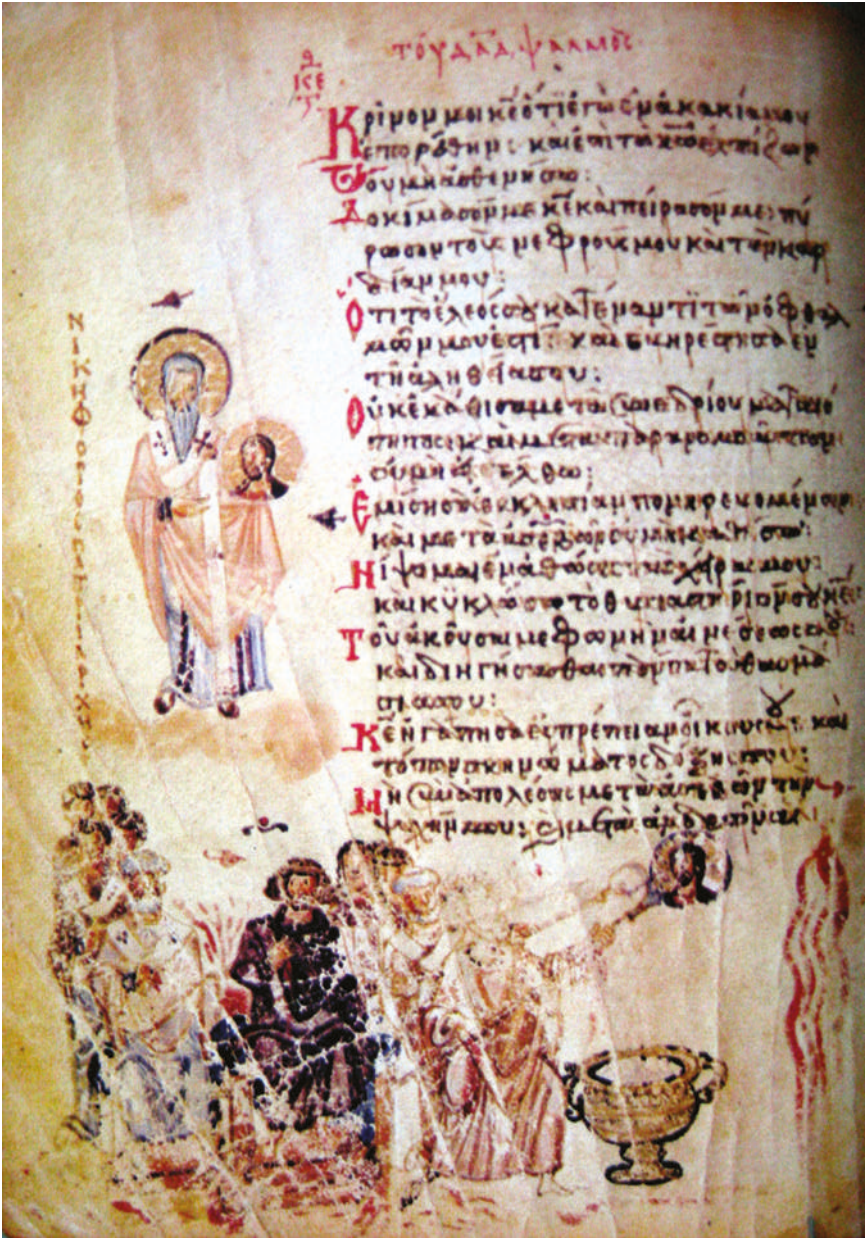 τοῦ δᾱδ ψαλμός
κε
Κρῖνόν μοι κε̄ ὅτι ἐγὼ ἐν ἀκακία μου
ἐπορεύθην· καὶ ἐπὶ τῶ κω̄ ἐλπίζων
οὐ μὴ ἀσθενήσω:
Δοκίμασόν με κε̄ καὶ πείρασόν με· πύ
ρωσον τοὺς νεφρούς μου καὶ τὴν καρ
δίαν μου:
Ὅτι τὸ ἔλεός σου κατέναντι τῶν ὀφθαλ
μῶν μου ἐστί· καὶ εὐηρέστησα ἐν
τῆ ἀληθεία σου:
Οὐκ ἐκάθισα μετὰ συνεδρίου ματαιό
τητος καὶ μετὰ παρανομούντων
οὐ μὴ εἰσέλθω:
Ἐμίσησα ἐκκλησίαν πονηρευομένων
καὶ μετὰ ἀσεβῶν οὐ μὴ καθίσω:
Νίψομαι ἐν ἀθώοις τὰς χεῖρας μου:
καὶ κυκλώσω τὸ θυσιαστήριόν σου κε̄
Τοῦ ἀκοῦσαί με φωνὴν αἰνέσεώς σου
καὶ διηγήσασθαι πάντα τὰ θαυμά
σιά σου:
Κε̄ ἠγάπησα εὐπρέπειαν οἴκου σου· καὶ
τόπον σκηνώματος δόξης σου:
Μὴ συναπολέσης μετὰ ἀσεβῶν τὴν
ψυχήν μου:
ΝΙΚΗΦΟΡΟΣ ΠΑΤΡΙΑΡΧΗΣ